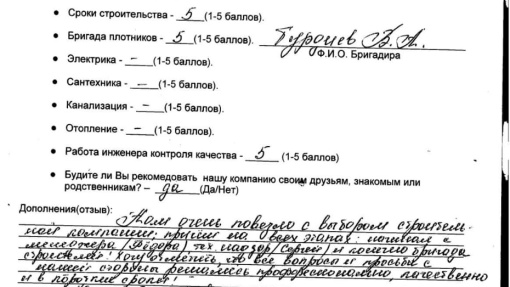 • Сроки строительства - 5 (1-5 баллов).
• Бригада плотников - 5 (1-5 баллов). В.А.
Ф.И.О. Бригадира
• Электрика - – (1-5 баллов).
• Сантехника - – (1-5 баллов).
• Канализация - – (1-5 баллов).
• Отопление - – (1-5 баллов).
• Работа инженера контроля качества - 5 (1-5 баллов)
• Будите ли Вы рекомедовать нашу компанию своим друзьям, знакомым или
родственникам? – да (Да/Нет)
Дополнения(отзыв):
Нам очень повезло с выбором строитель-
ной компании: на всех этапах: начиная с
менеджера (Фёдора) тех надзор (Сергей) и конечно бригада
строителей! Хочу отметить, что все вопросы и просьбы с
нашей стороны решались профессионально, качественно
и в короткие сроки!